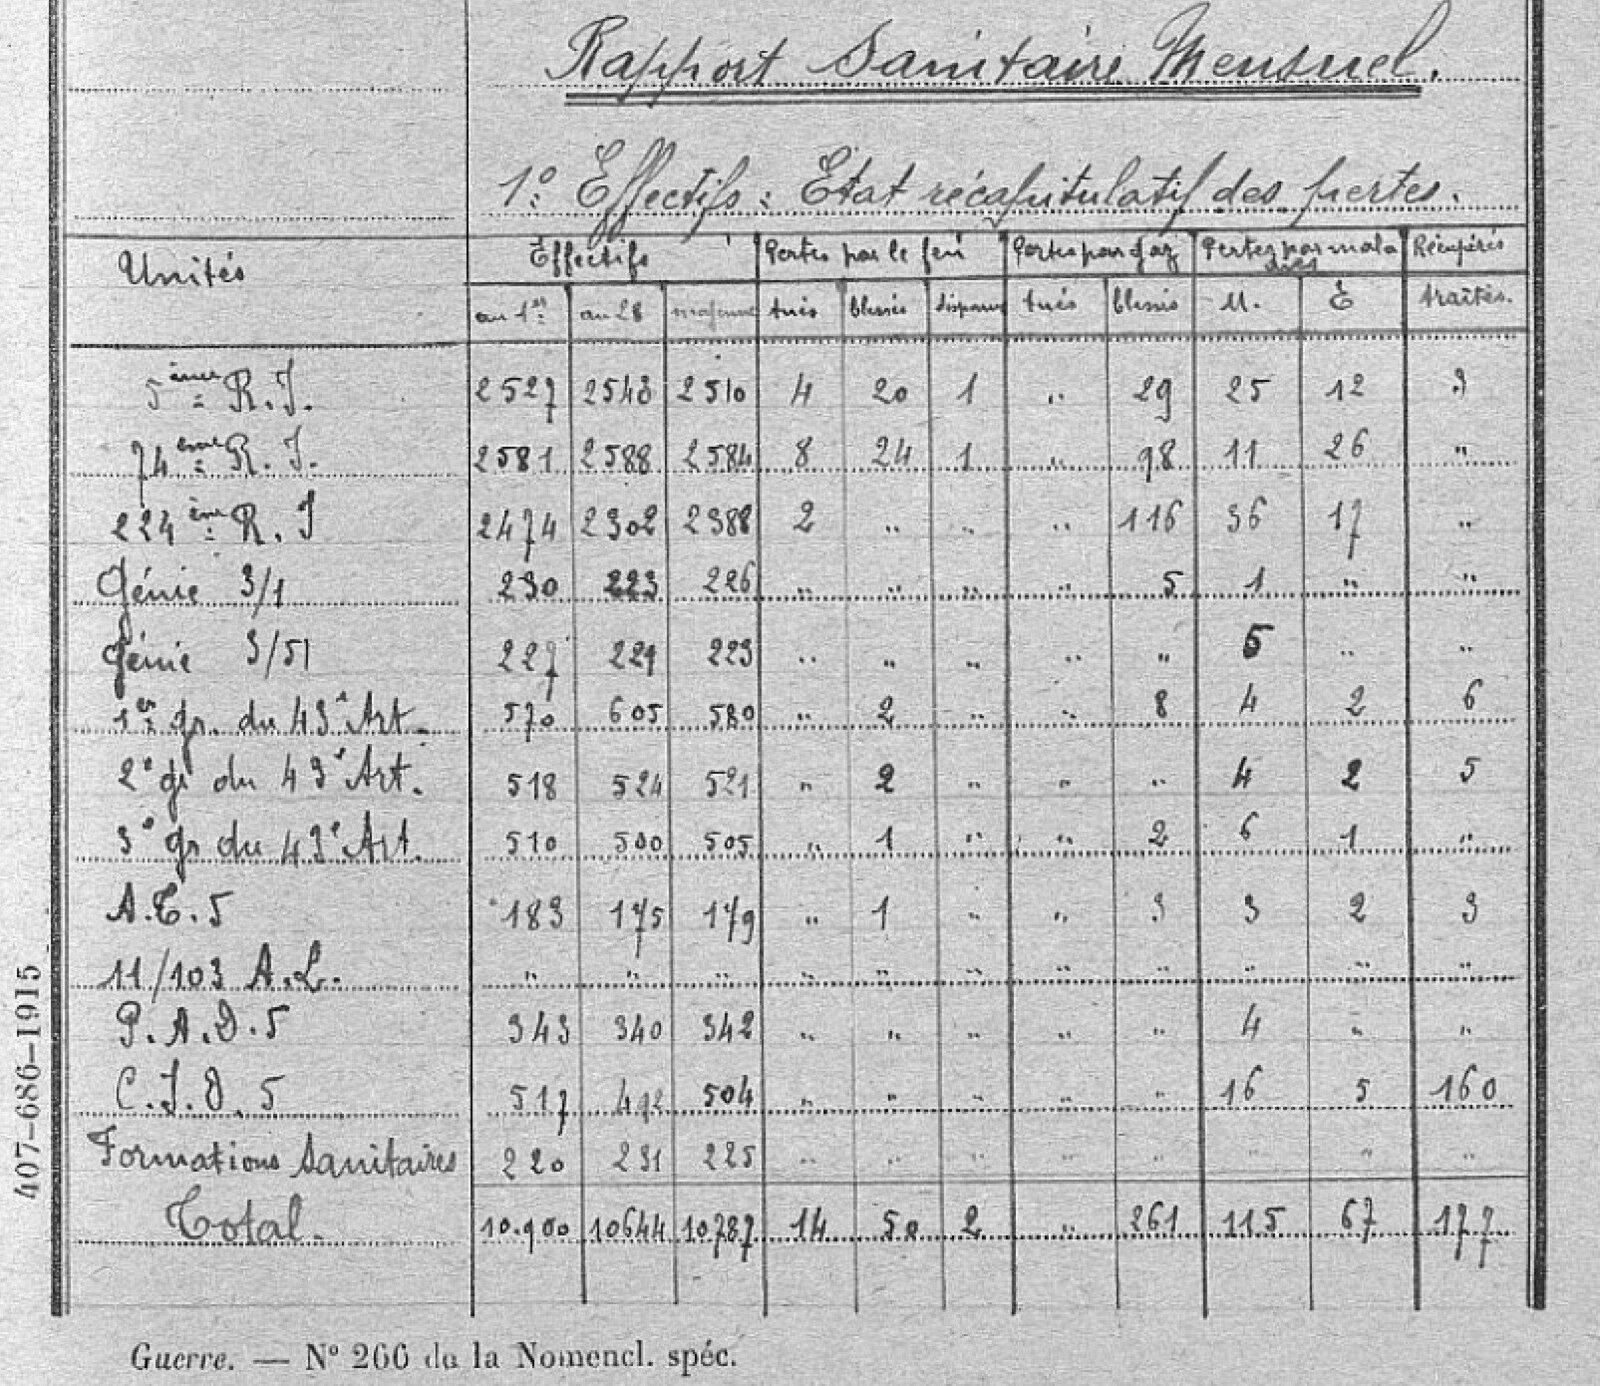 Rapport Sanitaire Mensuel.
1º: Effectifs: Etat récapitulatif des pertes.
Unités Effectifs Pertes par le feu Pertes par gaz Pertes par maladies Récupérés
au 1er au 28 moyenne tués blessés disparus tués blessés M. E traités.
5ème R.I. 2527 2543 2510 4 20 1 .. 29 25 12 3
74ème R.I. 2581 2588 2584 8 24 1 .. 98 11 26 "
224ème R.I 2474 2302 2388 2 .. .. .. 116 36 17 ..
Génie 3/1 230 223 226 .. .. .. .. 5 1 " "
Génie 3/51 227 229 223 .. .. .. .. " 5 .. ..
1er gr. du 43e Art. 570 605 580 .. 2 .. .. 8 4 2 6
2e gr du 43e Art. 518 524 521 " 2 .. .. .. 4 2 5
3e gr du 43e Art. 510 500 505 .. 1 .. .. 2 6 1 ..
A.C.5 183 175 179 .. 1 .. .. 3 3 2 3
11/103 A.L. .. .. .. .. .. .. .. .. .. .. ..
P.A.D.5 343 340 342 .. .. .. .. .. 4 .. ..
C.I.D.5 517 492 504 .. .. .. .. .. 16 5 160
Formations Sanitaires 220 231 225 .. .. .. .. .. .. .. ..
Total. 10.900 10644 10787 14 50 2 .. 261 115 67 177
407-686-1915
Guerre. — Nº 266 de la Nomencl. spéc.